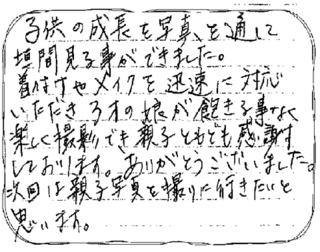 子供の成長を写真を通じて
垣間見る事ができました。
着付けやメイクを迅速に対応
いただき3才の娘が飽きる事なく
楽しく撮影でき親子ともども感謝
しております。ありがとうございました。
次回は親子写真を撮りに行きたいと
思います。